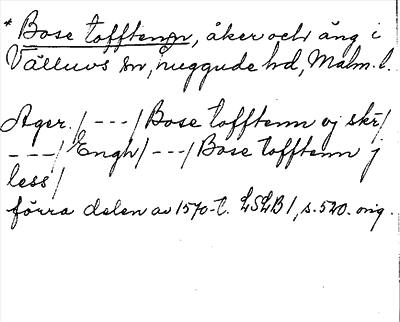 * Bose tofftenn, åker och äng i
Välluvs sn, Luggude hd, Malm. l.
Ager / --- / Bose tofftenn ej skr /
--- / Engh / --- / Bose tofftenn j
less /
förra delen av 1570-t. LSLB 1, s. 520. orig.